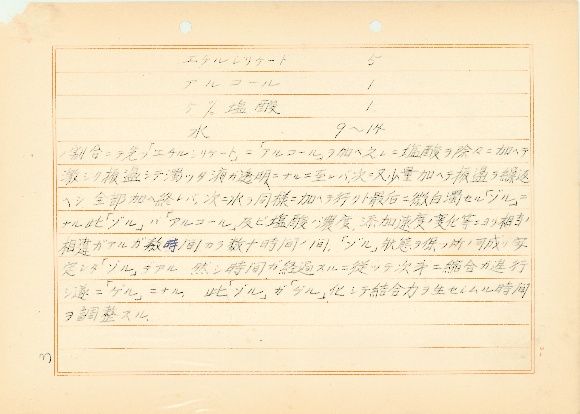 エチルシリケート 5
アルコール 1
5% 塩酸 1
水 9〜14
ノ割合ニテ先ヅ「エチルシリケート」ニ「アルコール」ヲ加ヘ之レニ塩酸ヲ徐々ニ加ヘテ
激シク攪拌シテ濁ッタ液ガ透明ニナルニ至レバ、次ニ又少量加ヘテ攪拌ヲ繰返
ヘシ全部加ヘ終レバ、次ニ水ヲ同様ニ加ヘテ行クト最后ニ微白濁セル「ゾル」ニ
ナル此「ゾル」ハ「アルコール」及ビ塩酸ノ濃度、添加速度ノ変化等ニヨリ相当
相違ガアルガ数時間カラ数十時間ノ間、「ゾル」状態ヲ保ツ所ノ可成リ安
定シタ「ゾル」デアル 然シ時間ガ経過スルニ従ッテ次第ニ縮合ガ進行
シ遂ニ「ゲル」ニナル. 此「ゾル」ガ「ゲル」化シテ結合力ヲ生ゼシムル時間
ヲ調整スル.